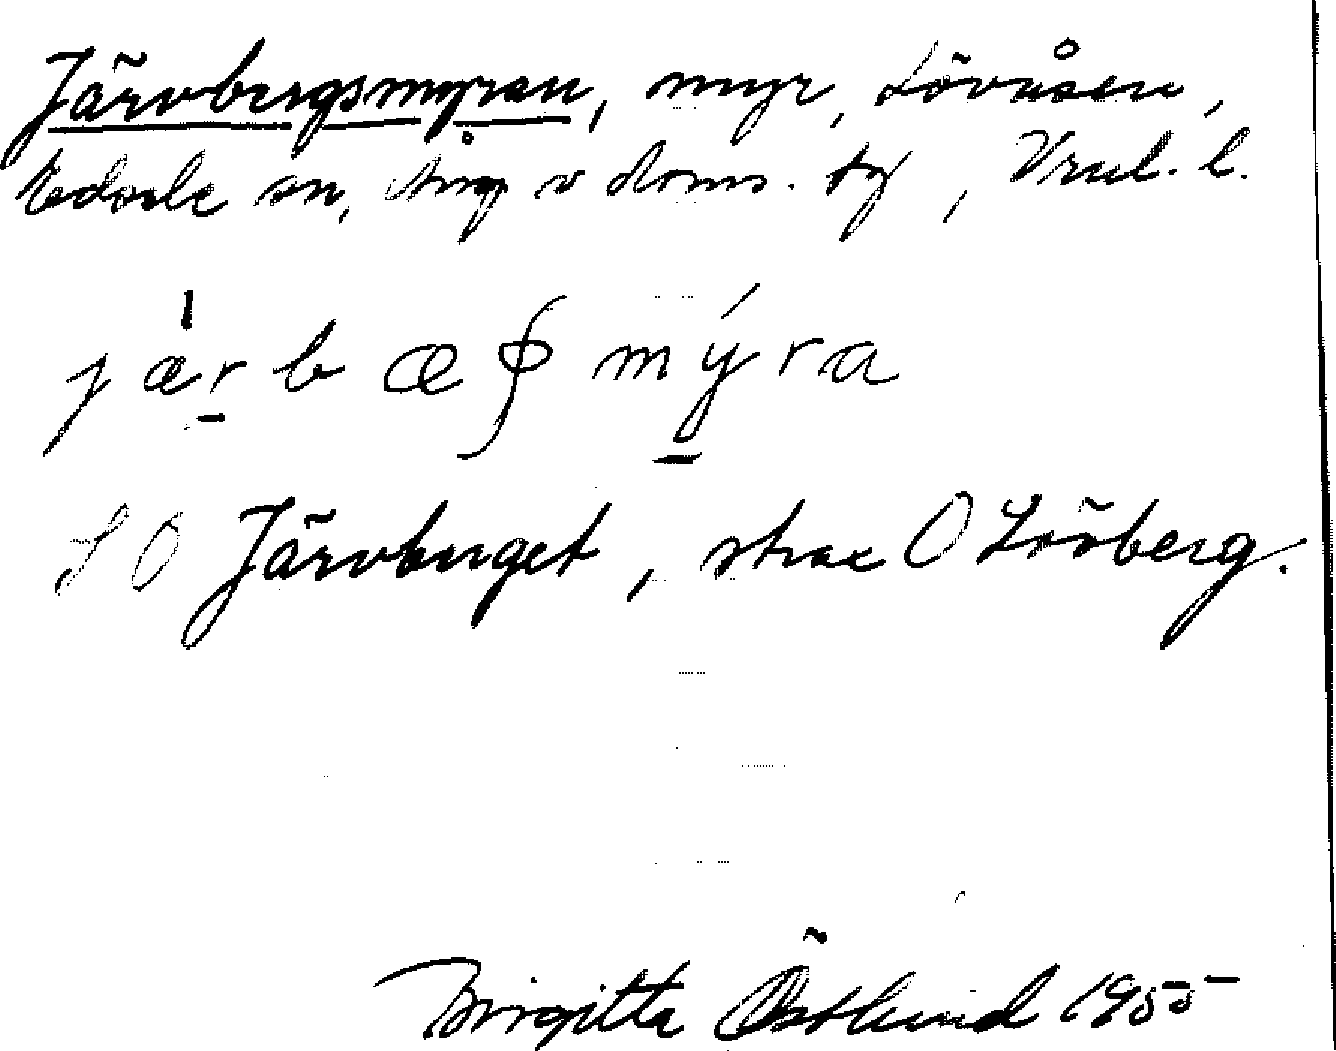 Järvbergsmyran, myr, Lövåsen,
Edsele sn, Ång v doms. tg, Vnl. l.
jǽrbæʃmýra
SO Järvberget, strax O Lövberg.
Birgitta Östlund 1955